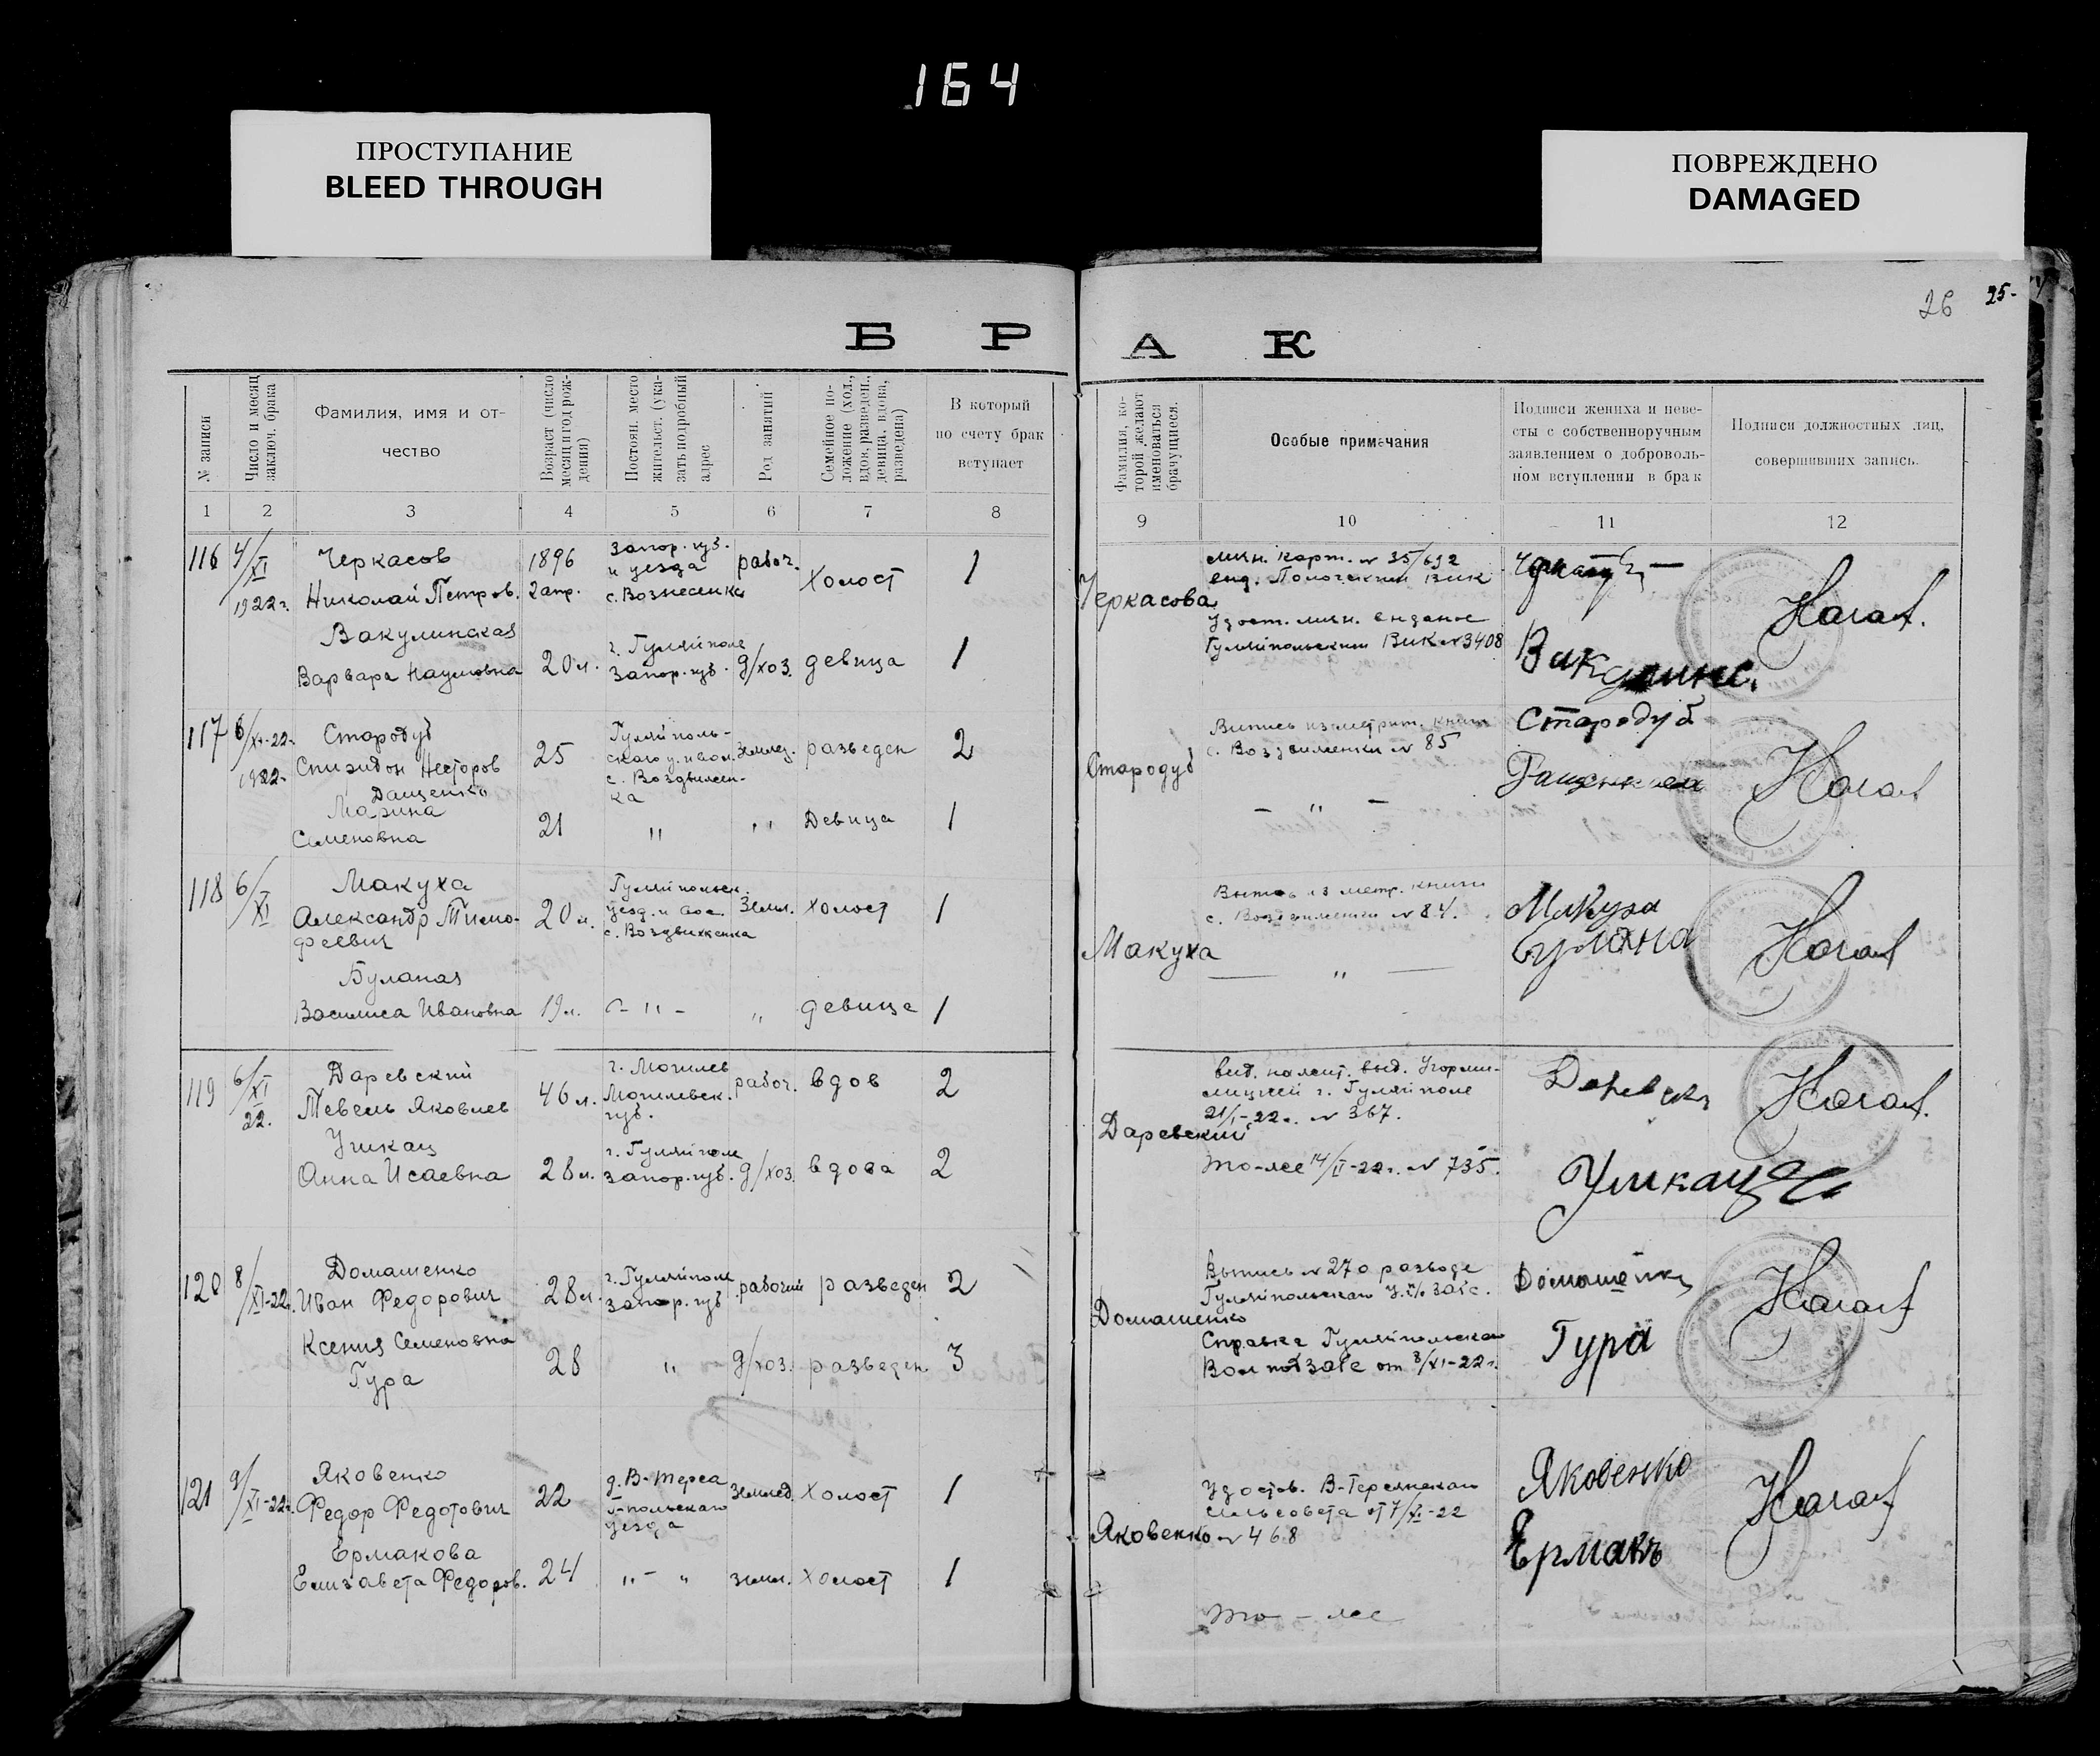 164
ПРОСТУПАНИЕ
BLEED THROUGH
ПОВРЕЖДЕНО
DAMAGED
26 25-
Б Р А К
№ записи
Число и месяц
заключ. брака
Фамилия, имя и от-
чество
Возраст (число
месяц и год рож-
дения)
Постоян. место
жительст. (ука-
зать подробный
адрес
Род занятий
Семейное по-
ложение (хол.,
вдов, разведен.,
девица, вдова,
разведена)
В который
по счету брак
вступает
Фамилия, ко-
торой желают
именоваться
брачущиеся.
Особые примечания
Подписи жениха и неве-
сты с собственноручным
заявлением о доброволь-
ном вступлении в брак
Подписи должностных лиц,
совершивших запись.
1 2 3 4 5 6 7 8 9 10 11 12
116 4/XI
1922г.
Черкасов
Николай Петров.
1896
2 апр.
Запор. губ.
и уезда
с. Вознесенка
рабоч.
Холост
1
Вакулинская
Варвара Наумовна
20 л.
г. Гуляйполе
Запор. губ.
д/хоз.
девица
1
Черкасова
личн. карт. № 35/692
Удост. личн.
Гуляйпольским ВИК № 3408
117 6/XI-22.
1922-
Стародуб
Спиридон Несторов
25
Гуляйполь-
ского у. и вол.
с. Воздвижен-
ка
землед.
разведен
2
Дащенко
Марина
Семеновна
21
"
"
Девица
1
Стародуб
Выпись из метрич. книги
с. Воздвиженки № 85
- " -
Стародуб
118 6/XI
Макуха
Александр Тимо-
феевич
20 л.
Гуляйпольск.
уезд. и вол.
с. Воздвиженка
Земл.
холост
1
Буланая
Василиса Ивановна
19 л.
- " -
"
девица
1
Макуха
Выпись из метр. книги
с. Воздвиженки № 84.
— " —
Макуха
119 6/XI
22.
Даревский
Тевель Яковлев
46 л.
г. Могилев
Могилевск.
губ.
рабоч.
вдов
2
Учикац
Анна Исаевна
28 л.
г. Гуляйполе
запор. губ.
д/хоз.
вдова
2
Даревский
вид. на жит. выд.
г. Гуляйполе
21/I-22г. № 367.
то-же 14/II-22г. № 735.
120 8/XI-22г.
Домашенко
Иван Федорович
28 л.
г. Гуляйполе
запор. губ
рабочий
разведен
2
Ксения Семеновна
Гура
28
"
д/хоз.
разведен.
3
Домашенко
Выпись № 27 о разводе
Гуляйпольская у. п/о ЗАГС.
Справка Гуляйпольского
Вол под ЗАГС от 8/XI-22г.
Домашенко
Гура
121 9/XI-22г.
Яковенко
Федор Федотович
22
д. В-Терса
Г-польского
уезда
землед.
Холост
1
Ермакова
Елизавета Федоров.
24
" - "
земл.
холост
1
Яковенко
Удостов. В-Терсянского
сельсовета от 7/XI-22
№ 468
то - же
Яковенко
Ермакъ